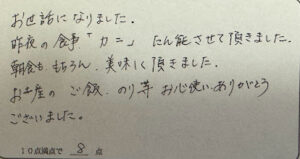 お世話になりました。
昨夜の食事「カニ」たん能させて頂きました。
朝食も もちろん 美味しく頂きました。
お土産の ご飯 のり等 お心使い、ありがとう
ございました。
10点満点で 8 点